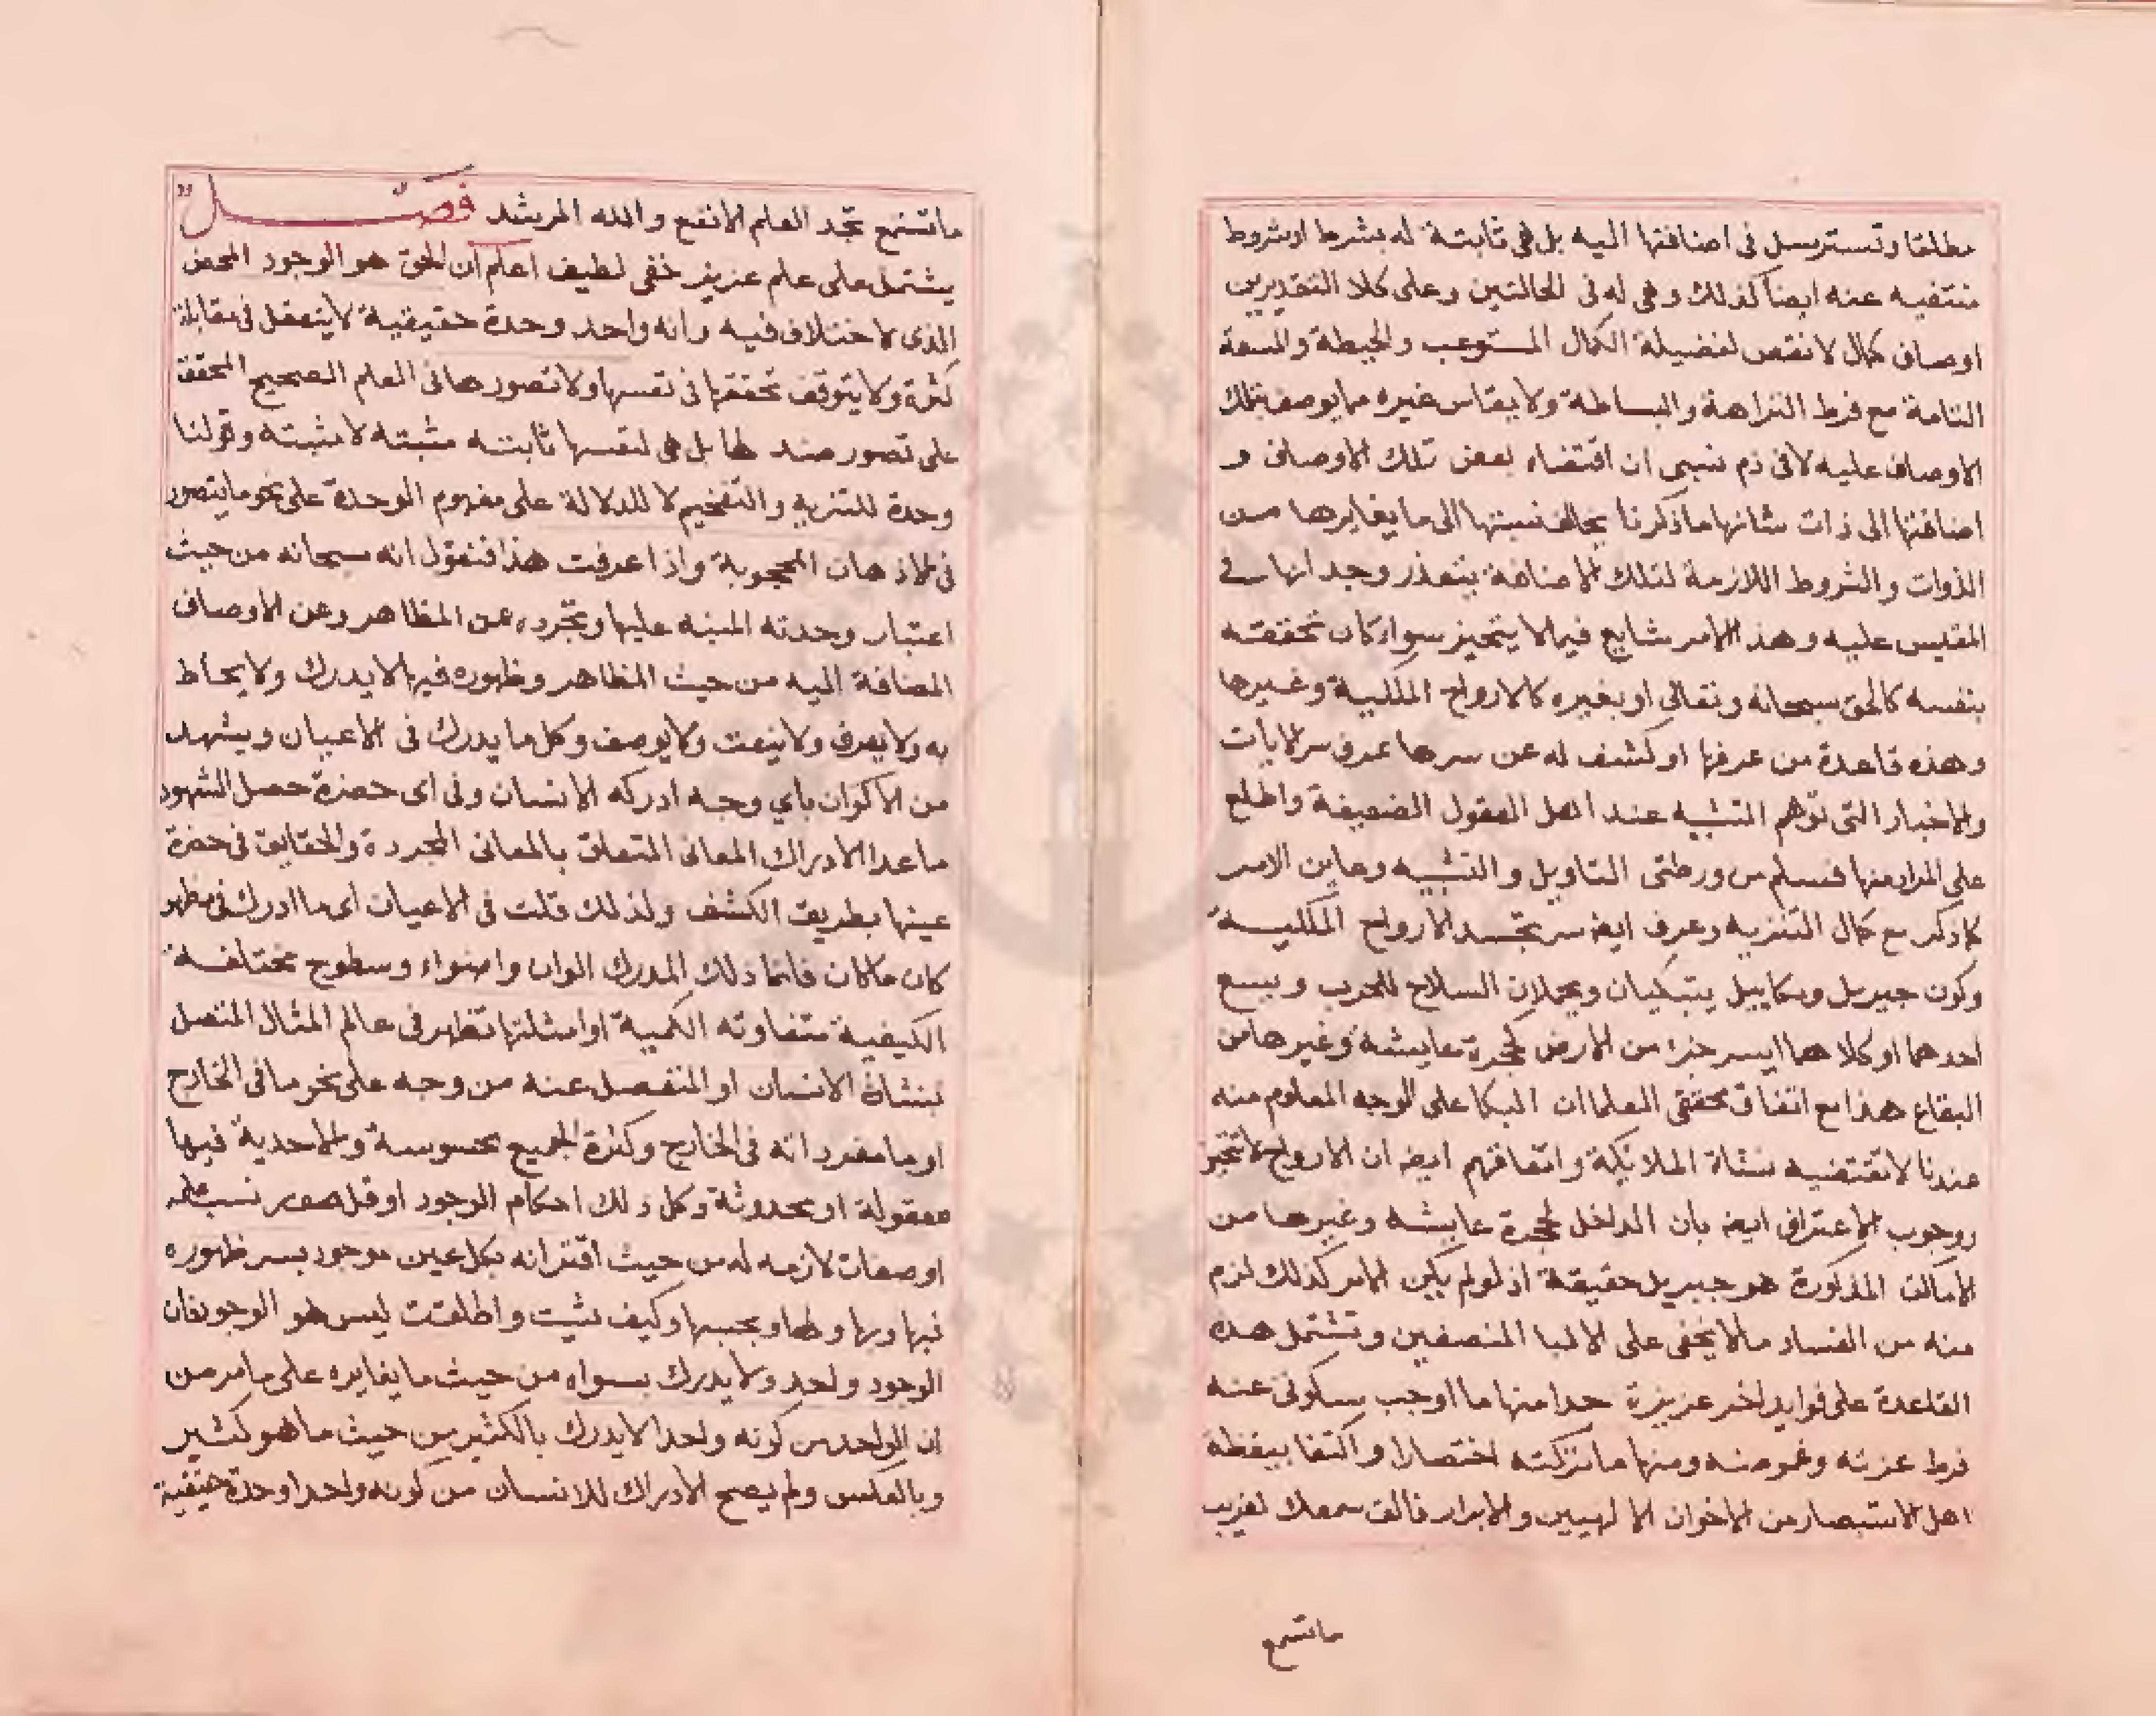 مطلقا وتسترسل فى اضافتها اليه بل هى ثابتة له بشرط اوشروط
منتفيه عنه ايضا كذلك وهى له فى الحالتين وعلى كلا التقديرين
اوصاف كمال لا نقص لفضيلة الكمال المستوعب والحيطة والسعة
التامة مع فرط النزاهة والبساطة ولا يقاس غيره مما يوصف بتلك
الاوصاف عليه لا فى ذم نسبى ان اقتضاه بعض تلك الاوصاف و
اضافتها الى ذات شانها ما ذكرنا يخالف نسبتها الى ما يغايرها من
الذوات والشروط اللازمة لتلك الاضافة يتعذر وجدانها فى
المقيس عليه وهذا الامر شايع فيما لا يتحيز سواء كان تحققه
بنفسه كالحق سبحانه وتعالى او بغيره كالارواح الملكية وغيرها
وهذه قاعدة من عرفها او كشف له عن سرها عرف سر الايات
والاخبار التى توهم التشبيه عند اهل العقول الضعيفة واطلع
على المراد منها فسلم من ورطتى التاويل والتشبيه وعاين الامر
كما ذكر مع كمال التنزيه وعرف ايضه سر تجسد الارواح الملكية
وكون جبريل وميكاييل يتبكيان ويحملان السلاح للحرب ويسع
احدهما او كلاهما ايسر جزء من الارض كحجرة عايشة وغيرها من
البقاع هذا مع اتفاق محققى العلما ان البكا على الوجه المعلوم منه
عندنا لا تقتضيه نشاة الملائكة واتفاقهم ايضه ان الارواح لا تتحيز
ووجوب الاعتراف ايضه بان الداخل لحجرة عايشه وغيرها من
الاماكن المذكورة هو جبريل حقيقة اذ لو لم يكن الامر كذلك لزم
منه من الفساد مالا يخفى على الالبا المنصفين وتشتمل هذه
القاعدة على فوايد اخر عزيزة جدا منها ما اوجب سكوتى عنه
فرط عزته وغموضه ومنها ما تركته اختصارا واكتفا بيقظة
اهل الاستبصار من الاخوان الالهيين والابرار فالق سمعك لغريب
ماتسمع
ماتسمع تجد العلم الانفع والله المرشد فصل
يشتمل على علم عزيز خفى لطيف اعلم ان الحق هو الوجود المحض
الذى لا اختلاف فيه وانه واحد وحدة حقيقية لا يتعقل فى مقابلة
كثرة ولا يتوقف تحققها فى نفسها ولا تصورها فى العلم الصحيح المحقق
على تصور ضد لها بل هى لنفسها ثابته مثبته لا مثبته وقولنا
وحدة للتنزيه والتفخيم لا للدلالة على مفهوم الوحدة على نحو ما يتصور
فى الاذهان المحجوبة واذا عرفت هذا فنقول انه سبحانه من حيث
اعتبار وحدته المنبه عليها وتجرده عن المظاهر وعن الاوصاف
المضافة اليه من حيث المظاهر وظهوره فيها لا يدرك ولا يحاط
به ولا يعرف ولا ينعت ولا يوصف وكل ما يدرك فى الاعيان ويشهد
من الاكوان باي وجه ادركه الانسان وفى اى حضرة حصل الشهود
ما عدا الادراك المعانى المتعلق بالمعانى المجردة والحقايق فى حضرة
عينها بطريق الكشف ولذلك قلت فى الاعيان اى ما ادرك فى مظهر
كان ما كان فانما ذلك المدرك الوان واضواء وسطوح مختلفة
الكيفية متفاوته الكمية او امثلتها تظهر فى عالم المثال المتصل
بنشاة الانسان او المنفصل عنه من وجه على نحو ما فى الخارج
او ما مفرداته فى الخارج وكثرة الجميع محسوسة والاحدية فيها
معقولة او محدوثة وكل ذلك احكام الوجود او قل صور نسب علمه
او صفات لازمه له من حيث اقترانه بكل عين موجود بسر ظهوره
فيها وبها ولها وبحسبها وكيف شيت واطلقت ليس هو الوجود فان
الوجود واحد ولا يدرك بسواه من حيث ما يغايره على ما مر من
ان الواحد من كونه واحدا لا يدرك بالكثير من حيث ما هو كثير
وبالعكس ولم يصح الادراك للانسان من كونه واحدا وحدة حقيقية